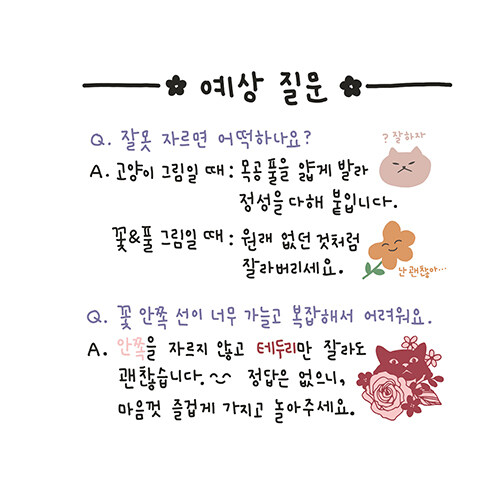 예상 질문
Q. 잘못 자르면 어떡하나요?
? 잘하자
A. 고양이 그림일 때 : 목공 풀을 얇게 발라
정성을 다해 붙입니다.
꽃&풀 그림일 때 : 원래 없던 것처럼
잘라버리세요.
난 괜찮아...
Q. 꽃 안쪽 선이 너무 가늘고 복잡해서 어려워요.
A. 안쪽을 자르지 않고 테두리만 잘라도
괜찮습니다.^^ 정답은 없으니,
마음껏 즐겁게 가지고 놀아주세요.